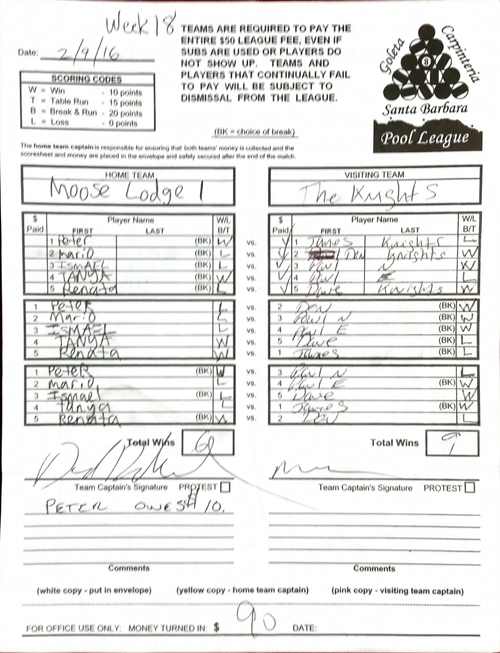 Week 18
Date: 2/9/16
TEAMS ARE REQUIRED TO PAY THE
ENTIRE $50 LEAGUE FEE, EVEN IF
SUBS ARE USED OR PLAYERS DO
NOT SHOW UP. TEAMS AND
PLAYERS THAT CONTINUALLY FAIL
TO PAY WILL BE SUBJECT TO
DISMISSAL FROM THE LEAGUE.
Goleta
Carpinteria
8
Santa Barbara
Pool League
SCORING CODES
W = Win - 10 points
T = Table Run - 15 points
B = Break & Run - 20 points
L = Loss - 0 points
(BK = choice of break)
The home team captain is responsible for ensuring that both teams' money is collected and the
scoresheet and money are placed in the envelope and safely secured after the end of the match.
HOME TEAM VISITING TEAM
Moose Lodge 1 The Knights
$ Paid Player Name FIRST LAST W/L B/T $ Paid Player Name FIRST LAST W/L B/T
1 Peter (BK) W vs. 1 James Knights L
2 Mario (BK) L vs. 2 Den Knights W
3 ISMAEL (BK) L vs. 3 Paul N W
4 TANYA (BK) W vs. 4 Paul E L
5 Renata (BK) L vs. 5 Dave Knights W
1 Peter L vs. 2 Den (BK) W
2 Mario L vs. 3 Paul N (BK) W
3 ISMAEL L vs. 4 Paul E (BK) W
4 TANYA W vs. 5 Dave (BK) L
5 Renata W vs. 1 James (BK) L
1 Peter (BK) W vs. 3 Paul N L
2 mario L vs. 4 Paul E (BK) W
3 Ismael (BK) L vs. 5 Dave W
4 Tanya L vs. 1 James (BK) W
5 Renata (BK) W vs. 2 Den L
Total Wins 6 Total Wins 9
Team Captain's Signature PROTEST Team Captain's Signature PROTEST
PETER OWES $10.
Comments Comments
(white copy - put in envelope) (yellow copy - home team captain) (pink copy - visiting team captain)
FOR OFFICE USE ONLY: MONEY TURNED IN: $ 90 DATE: